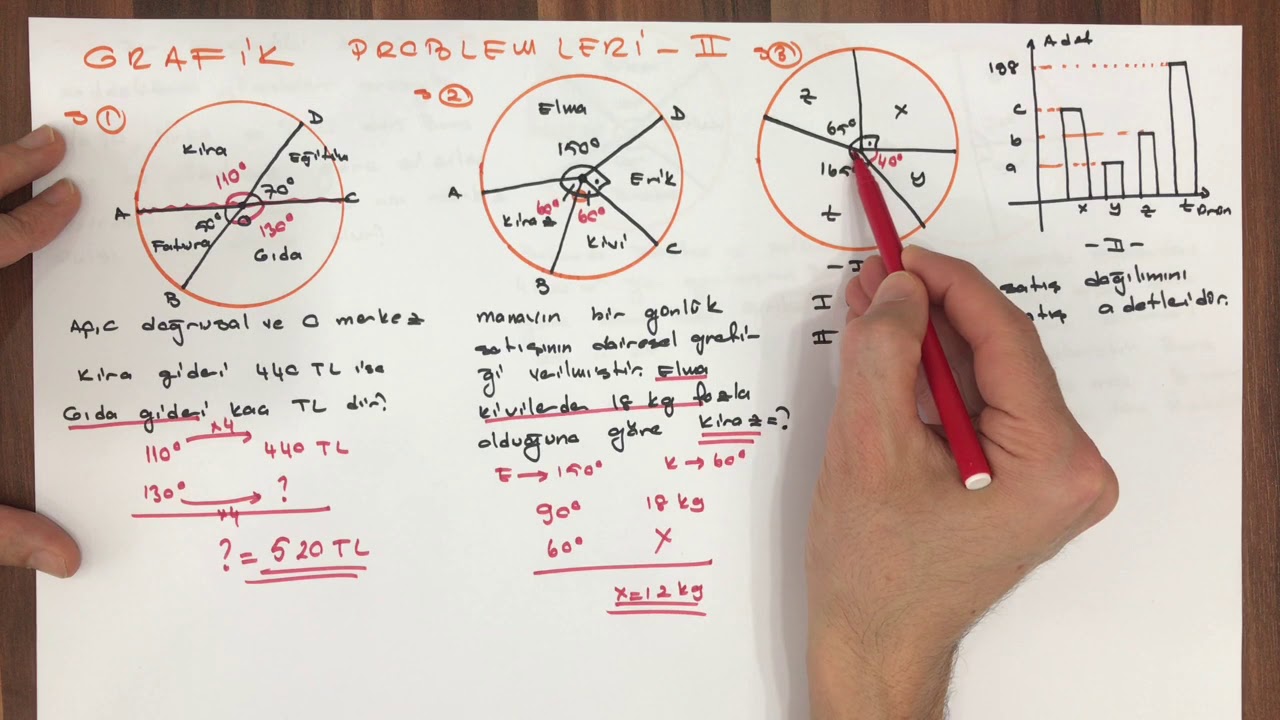 GRAFİK PROBLEMLERİ - II
→ ①
Kira
D
Eğitim
110°
70°
A
C
50°
O
130°
Fatura
Gıda
B
A,O,C doğrusal ve O merkez
Kira gideri 440 TL ise
Gıda gideri kaç TL dir?
110° ×4 440 TL
130° ×4 ?
? = 520 TL
→ ②
Elma
D
150°
Erik
A
60°
60°
Kiraz
Kivi
C
B
manavın bir günlük
satışının dairesel grafi-
ği verilmiştir. Elma
kivilerden 18 kg fazla
olduğuna göre kiraz=?
E → 150° K → 60°
90° 18 kg
60° X
x=12 kg
→ ③
z
x
65°
40°
165°
y
t
- I
I
II
Adet
188
c
b
a
x y z t Ürün
- II -
satış dağılımını
satış adetleridir.